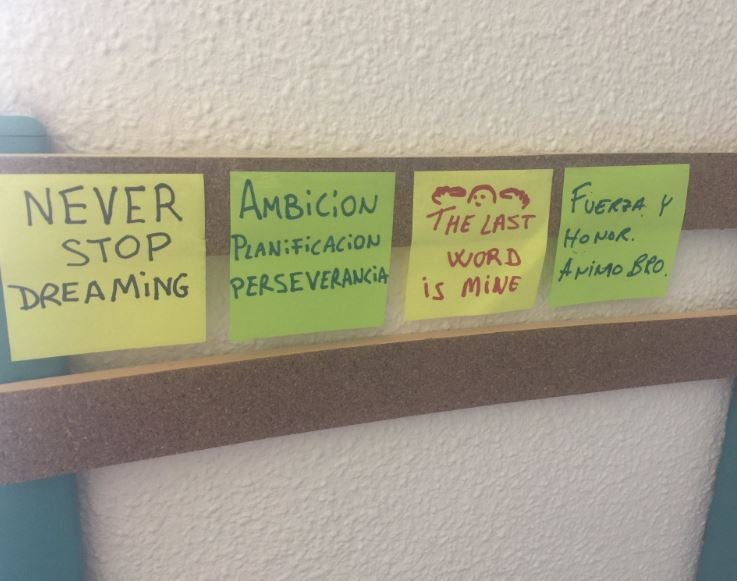 NEVER
STOP
DREAMING
AMBICION
PLANIFICACION
PERSEVERANCIA
THE LAST
WORD
is MINE
FUERZA Y
HONOR.
ANIMO BRO.